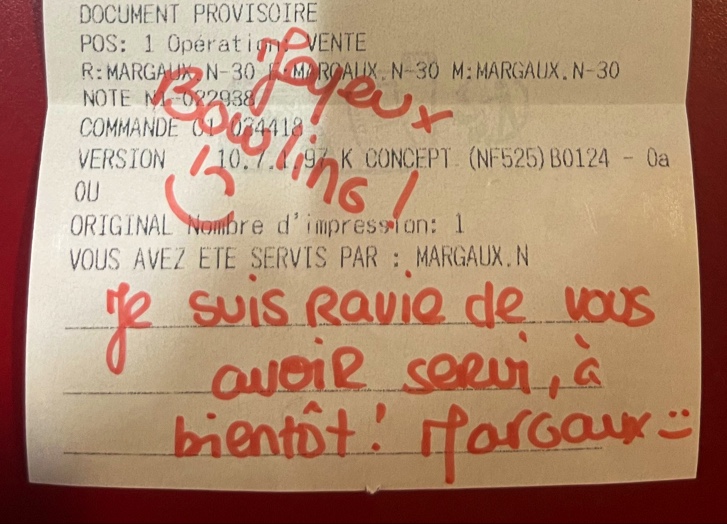 DOCUMENT PROVISOIRE
POS: 1 Opération: VENTE
R:MARGAUX.N-30 E:MARGAUX.N-30 M:MARGAUX.N-30
NOTE N1-022938
COMMANDE 01-034418
VERSION 10.7.1.97 K CONCEPT (NF525)B0124 - 0a
OU
ORIGINAL Nombre d'impression: 1
VOUS AVEZ ETE SERVIS PAR : MARGAUX.N
Joyeux
Bowling !
Je suis Ravie de vous
avoir servi, à
bientôt ! Margaux